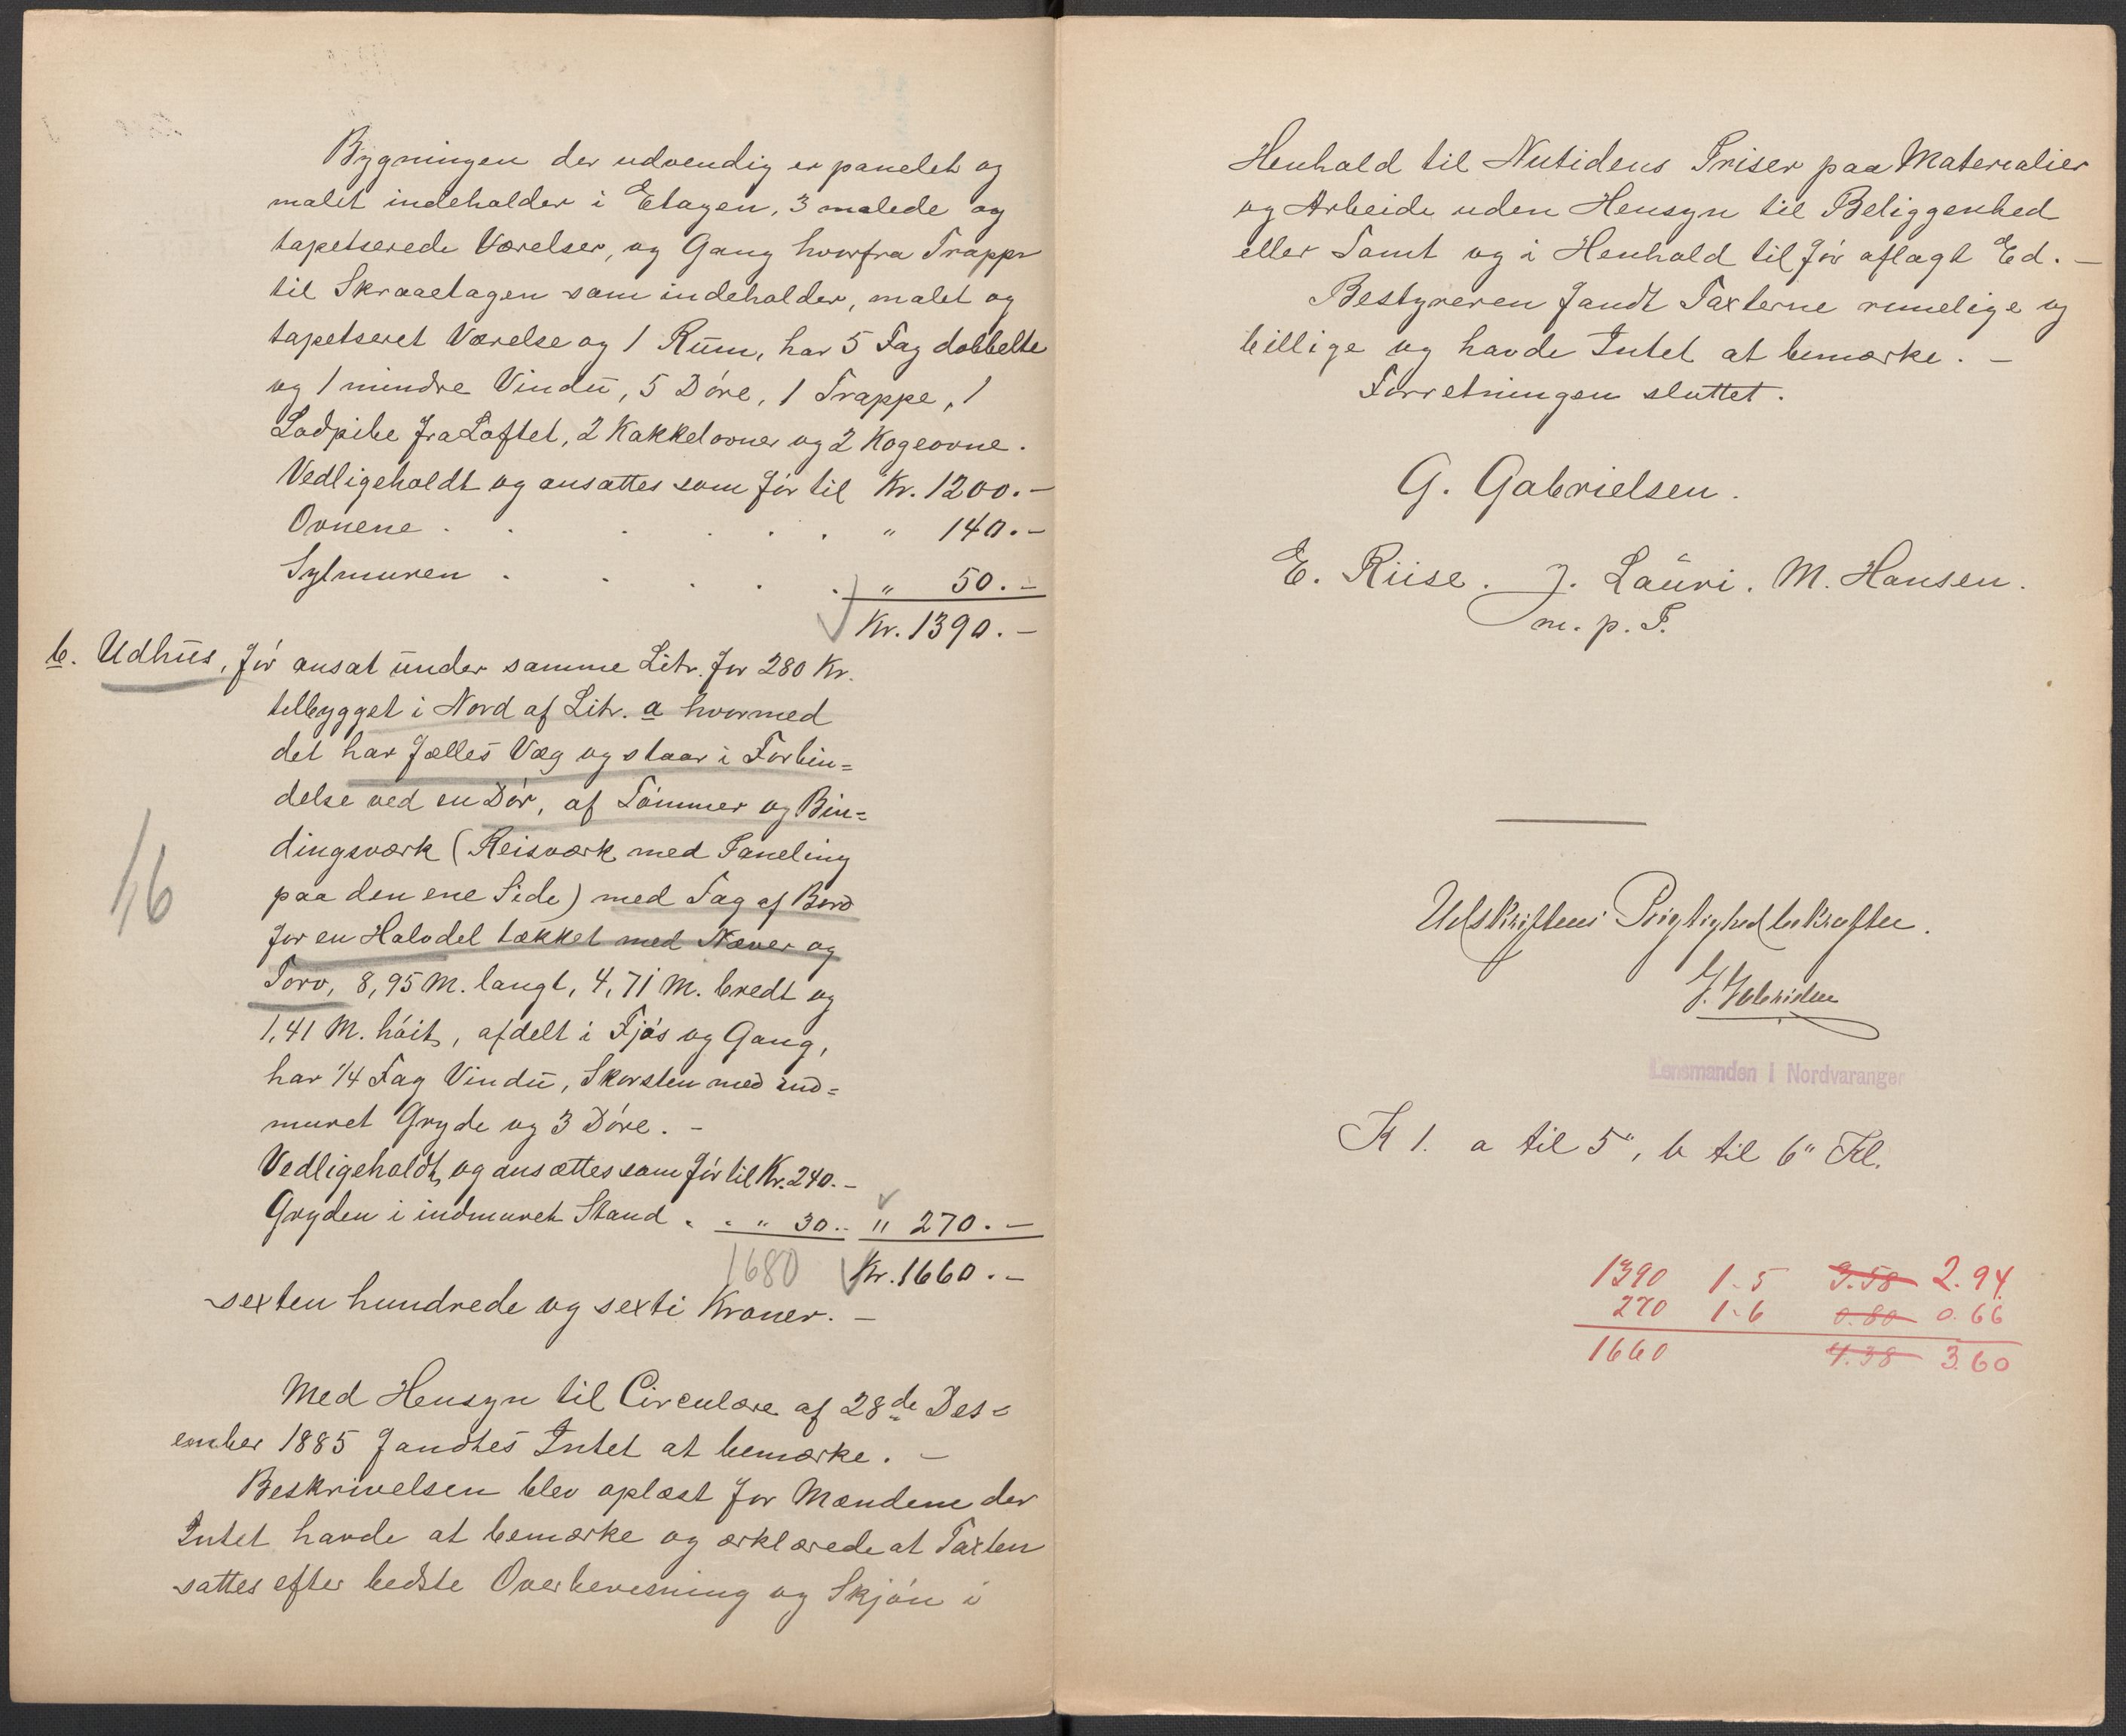 Bygningen der udvendig er panelet og
malet indeholder i Etagen, 3 malede og
tapetserede Værelser, og Gang hvorfra Trappe
til Skraaetagen som indeholder, malet og
tapetseret Værelse og 1 Rum, har 5 Fag dobbelte
og 1 mindre Vindu, 5 Døre, 1 Trappe, 1
Lodpibe fra Loftet, 2 Kakkelovner og 2 Kogeovne.
Vedligeholdt og ansattes som før til Kr. 1200.-
Ovnene . . . . . . " 140.-
Sylmuren . . . . . " 50.-
Kr. 1390.-
b. Udhus, før ansat under samme Litr. for 280 Kr.
tilbygget i Nord af Litr. a hvormed
det har fælles Væg og staar i Forbin=
delse ved en Dør, af Tømmer og Bin=
dingsværk (Reisværk med Paneling
paa den ene Side) med Tag af Bord
for en Halvdel tækket med Næver og
Torv, 8,95 M. langt, 4,71 M. bredt og
1,41 M. høit, afdelt i Fjøs og Gang,
har 1/4 Fag Vindu, Skorsten med ind=
muret Gryde og 3 Døre. -
Vedligeholdt, og ansættes som før til Kr. 240.-
Gryden i indmuret Stand . . " 30.- " 270.-
1680 Kr. 1660.-
sexten hundrede og sexti Kroner. -
Med Hensyn til Circulære af 28de Des=
ember 1885 fandtes Intet at bemærke. -
Beskrivelsen blev oplæst for Mændene der
Intet havde at bemærke og erklærede at Taxten
sattes efter bedste Overbevisning og Skjøn i
Henhold til Nutidens Priser paa Materialier
og Arbeide uden Hensyn til Beliggenhed
eller Tomt og i Henhold til før aflagt Ed. -
Bestyreren fandt Taxterne rimelige og
billige og havde Intet at bemærke. -
Forretningen sluttet.
G. Gabrielsen.
E. Riise. J. Lauri. M. Hansen.
m. p. F.
Udskriftens Rigtighed bekræfter.
Lensmanden i Nordvaranger
K 1. a til 5", b til 6" Kl.
1390 1-5 3.58 2.94
270 1-6 0.80 0.66
1660 4.38 3.60